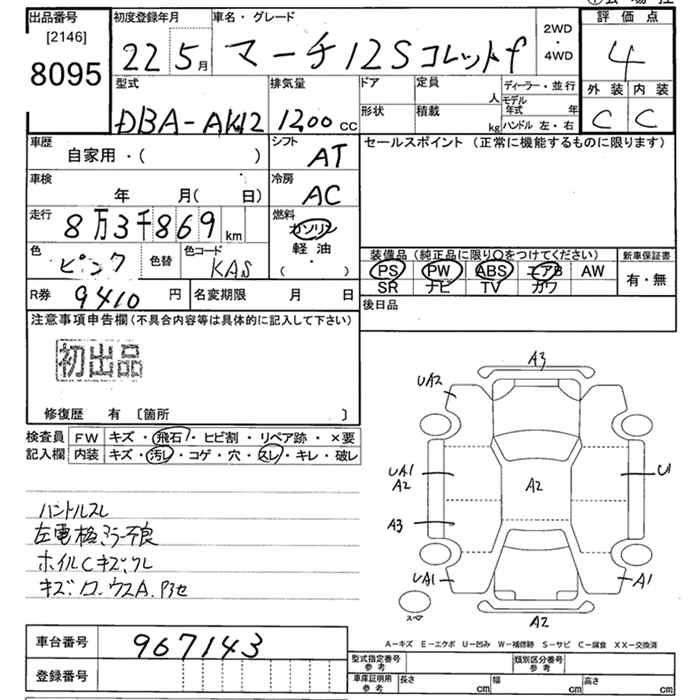 出品番号 初度登録年月 車名・グレード 2WD・4WD 評価点
[2146] 8095 22 5月 マーチ 12S コレットf 4
型式 排気量 ドア 定員 人 ディーラー・並行 外装 内装
DBA-AK12 1200 cc 形状 積載 kg モデル年式 年 ハンドル 左・右 C C
車歴 自家用・( ) シフト AT セールスポイント (正常に機能するものに限ります)
車検 年 月( 日) 冷房 AC
走行 8万3千869 km 燃料 ガソリン 軽油・( )
色 ピンク 色替 色コード KAS
装備品 (純正品に限り○をつけてください) 新車保証書
PS PW ABS エアB AW 有・無
SR ナビ TV カワ
R券 9410 円 名変期限 月 日 後日品
注意事項申告欄(不具合内容等は具体的に記入して下さい)
初出品
修復歴 有 [箇所 ]
検査員 FW キズ・飛石・ヒビ割・リペア跡・×要
記入欄 内装 キズ・汚レ・コゲ・穴・スレ・キレ・破レ
A3
UA2
UA1 A2 A2 U1
A3
UA1 A1
スペア A2
ハンドルスレ
左電格ミラー不良
ホイルCキズ、スレ
A-キズ E-エクボ U-凹み W-補修跡 S-サビ C-腐食 XX-交換済
車台番号 967143
登録番号
型式指定番号 参考 類別区分番号 参考
車庫証明用 参考 長さ cm 幅 cm 高さ cm